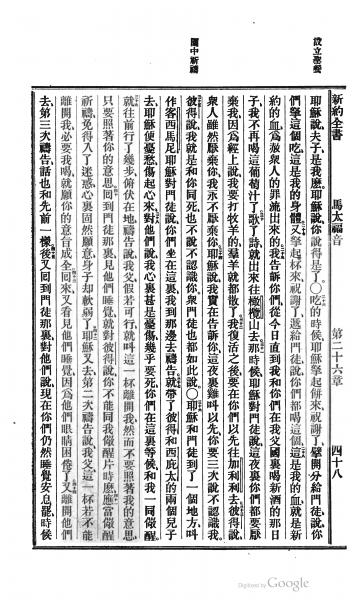 設立聖餐
園中祈禱
新約全書　馬太福音　第二十六章　四十八
耶穌說夫子是我麽耶穌說你說得是了○吃的時候耶穌拏起餅來祝謝了擘開分給門徒說你
們拏這個吃這是我的身體又拏起杯來祝謝了遞給門徒說你們都喝這個這是我的血就是新
約的血爲赦衆人的罪流出來的我告訴你們從今日直到我和你們在我父國裏喝新酒的那日
子我不再喝這葡萄汁了歌了詩就出來往橄欖山去那時候耶穌對門徒說這夜裏你們都要厭
棄我因爲經上說我要打牧羊的羣羊就都散了我復活之後要在你們以先往加利利去彼得說
衆人雖然厭棄你我永不厭棄你耶穌說我實在告訴你這夜裏雞叫以先你要三次說不認識我
彼得說我就是和你同死也不說不認識你衆門徒也都如此說○耶穌和門徒到了一個地方叫
作客西馬尼耶穌對門徒說你們坐在這裏我到那邊去禱告就帶了彼得和西庇太的兩個兒子
去耶穌便憂愁傷起心來對他們說我心裏甚是憂傷幾乎要死你們在這裏等候和我一同儆醒
就往前行了幾步俯伏在地禱告說我父假若可行就叫這一杯離開我然而不要照著我的意思
只要照著你的意思回到門徒那裏見他們睡覺就對彼得說你不能儆醒片時麽應當儆醒
祈禱免得入了迷惑心裏固然願意身子却軟弱了耶穌又去第二次禱告說我父這一杯若不能
離開我必要我喝就願你的意旨成全回來又看見他們睡覺因爲他們眼睛困倦了又離開他們
去第三次禱告話也和先前一樣後又回到門徒那裏對他們說現在你們仍然睡覺安息罷時候
Digitized by Google